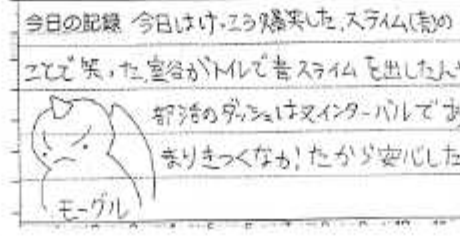 今日の記録 今日はけっこう爆笑した。スライム(青)の
ことで笑った。室谷がトイレで青スライムを出した
部活のダッシュは又インターバルであ
まりきつくなかったから安心した
モーグル